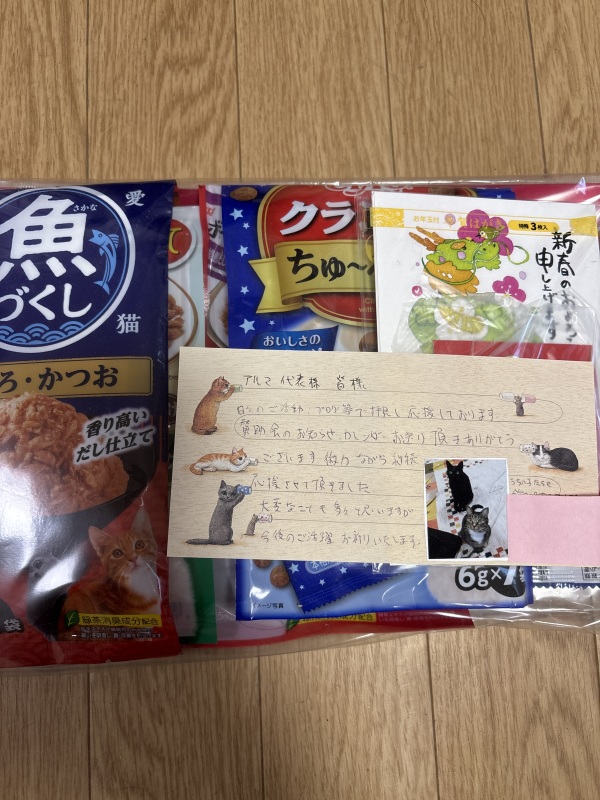 愛猫
さかな
魚
づくし
ろ・かつお
香り高い
だし仕立て
緑茶消臭成分配合
袋
クラ
ちゅ〜
おいしさの
6g×
イメージ写真
お年玉付
特殊3枚入
新春の
申し上げます
アルマ 代表様 皆様
日々のご活動、ブログ等で拝見し応援しております
賛助会のお知らせ、カレンダーお送り頂きありがとう
ございます 微力ながら継続
応援させて頂きました
大変なことも多々と思いますが
今後のご活躍お祈りいたします